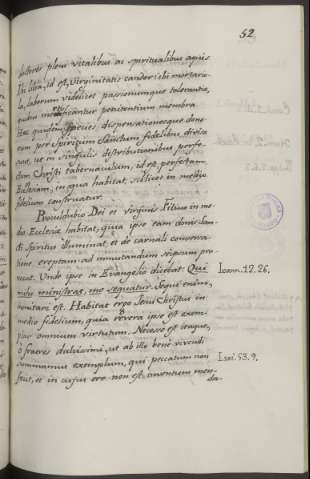 52
pleni vitalibus ac spiritualibus aquis
id est, Virginitatis candor: ibi mortario-
la, laborum videlicet passionumque tolerantia,
quibus mortificantur poenitentium membra.
Hae quidem species dispensationesque dona-
tae per Spiritum Sanctum fidelibus, divisa
que, ut in singulis distributionibus perfe-
Christi tabernaculum, id est perfectam
Ecclesiam, in qua habitat, scilicet in medio
fidelium construatur.
Dei et virginis Filius in me-
dio Ecclesiae habitat, quia ipse eam donis San-
cti Spiritus illuminat, et de carnali conversa-
tione ereptam ad imitandum seipsum pro-
vocat. Unde ipse in Evangelio dicebat: Qui
mihi ministrat, me sequatur. Sequi enim,
imitari est. Habitat ergo Jesus Christus in
medio fidelium, quia revera ipse est exem-
plar omnium virtutum. Necesse est itaque,
ò fratres dulcissimi, ut ab illo bene vivendi
sumamus exemplum, qui peccatum non
fecit, et in cujus ore non est inventum men-
da-
Joann. 12. 26.
Isai. 53. 9.